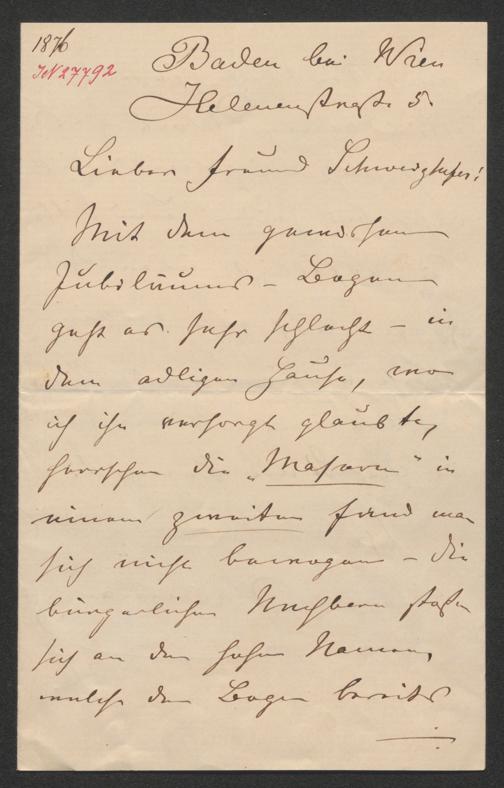 1876
IN 27792
Baden bei Wien
Helenenstraße 5.
Lieber Freund Schweighofer!
Mit dem gewissen
Jubiläums-Bogen
geht es sehr schlecht – in
dem adligen Hause, wo
ich ihn versorgt glaubte,
herrschen die "Masern" in
einem zweiten fand man
sich nicht bewogen – die
bürgerlichen Nachbarn stoßen
sich an den hohen Namen,
welche den Bogen bereits